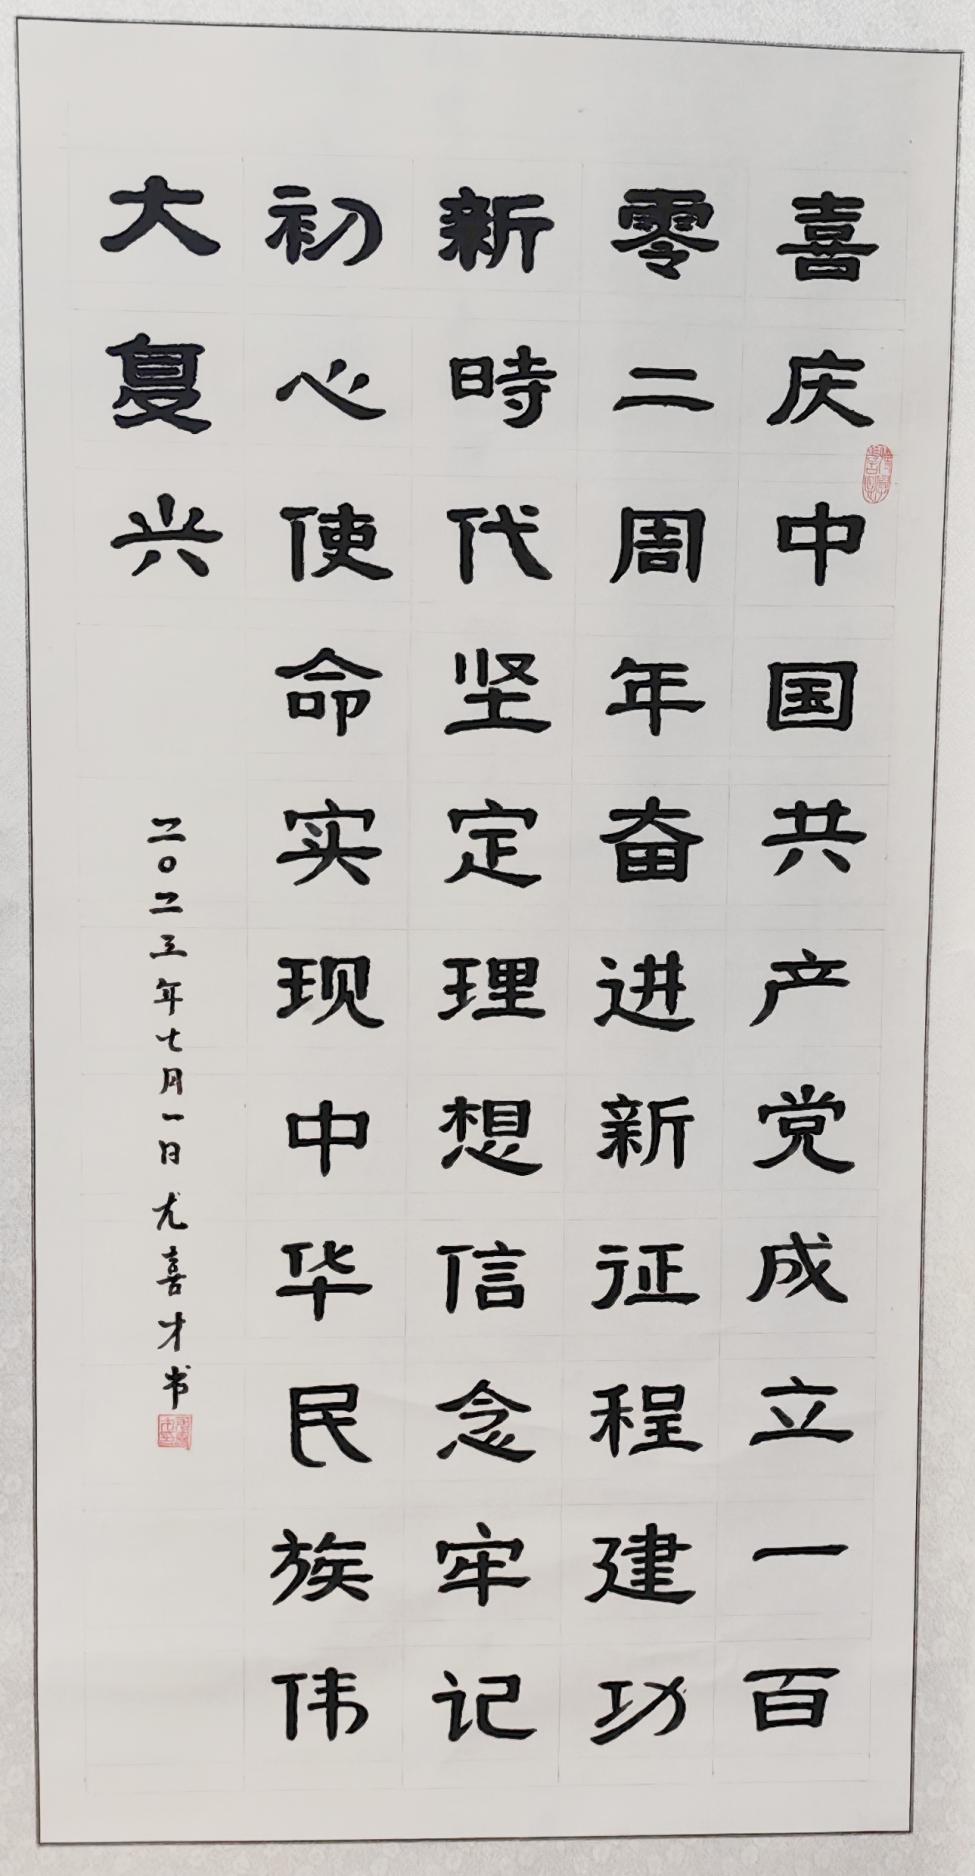 喜庆中国共产党成立一百
零二周年奋进新征程建功
新時代坚定理想信念牢记
初心使命实现中华民族伟
大复兴
二〇二三年七月一日尤喜才书